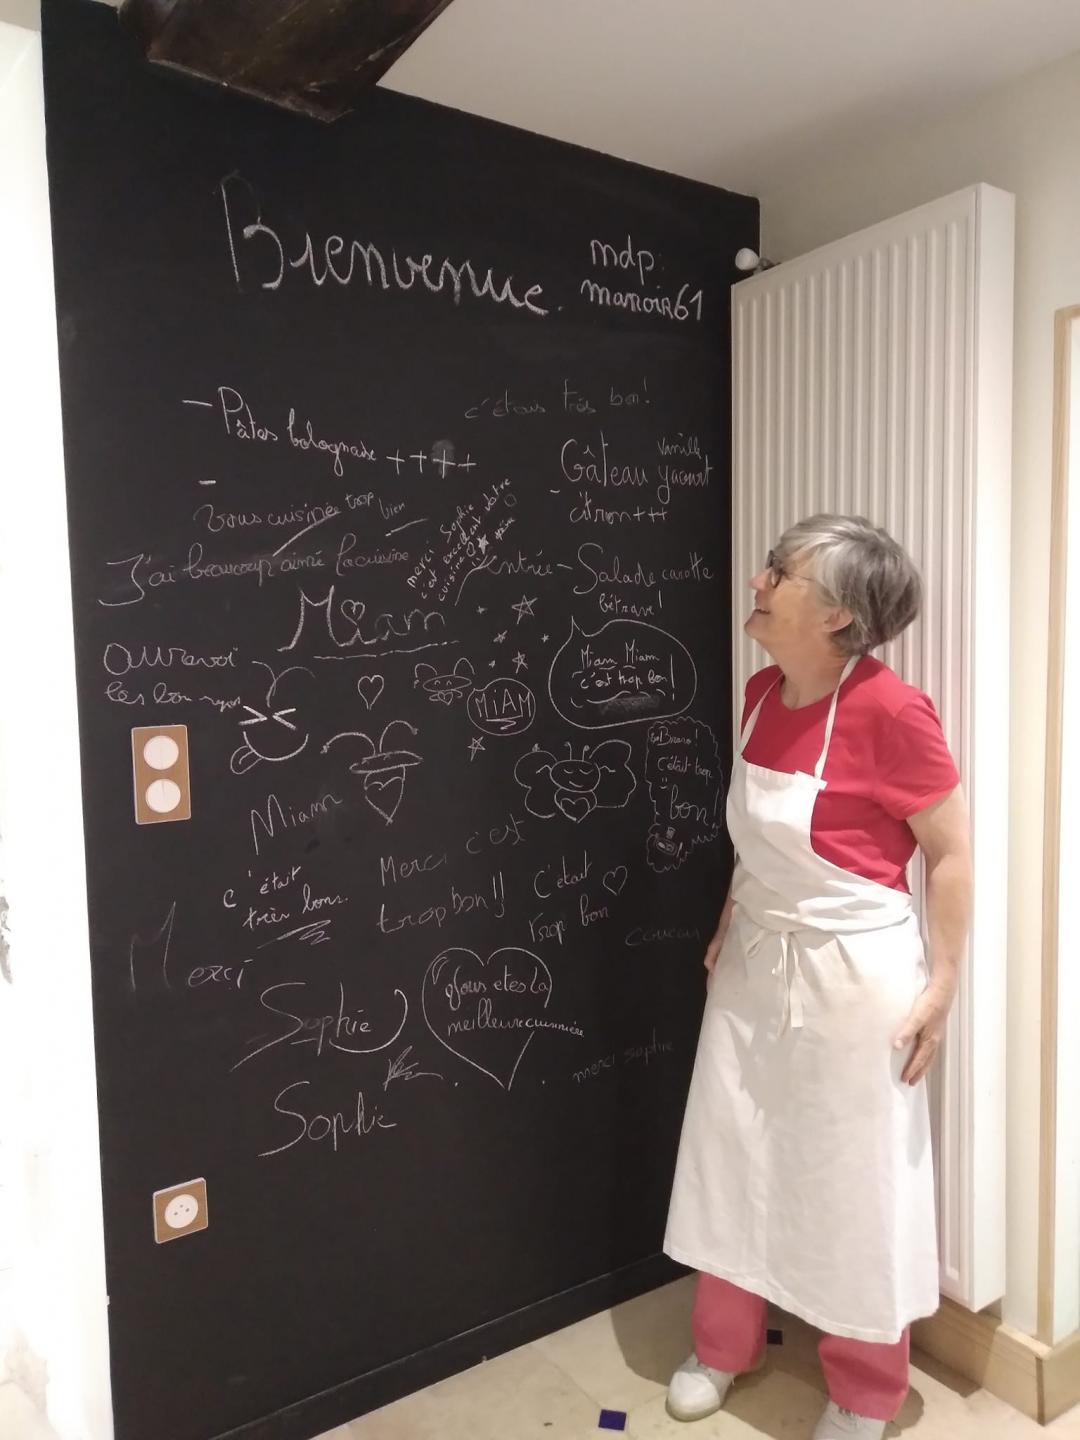 Bienvenue.
mdp:
manoir61
- Pâtes bolognaise ++++
c'étais très bon!
Gâteau yaourt
vanille
- citron+++
-
Vous cuisinée trop bien
J'ai beaucoup aimé la cuisine
merci Sophie
c'est excellent votre
cuisine
Entrée - Salade carotte
bétrave!
Miam
Miam Miam
c'est trop bon!
Ouuravoi
MIAM
Bravo!
C'était trop
bon!
Miam
Merci c'est
trop bon!!
c'était
très bon.
C'était
trop bon
coucou
Merci
Sophie
Vous etes la
meilleure cuisinière
merci sophie
Sophie